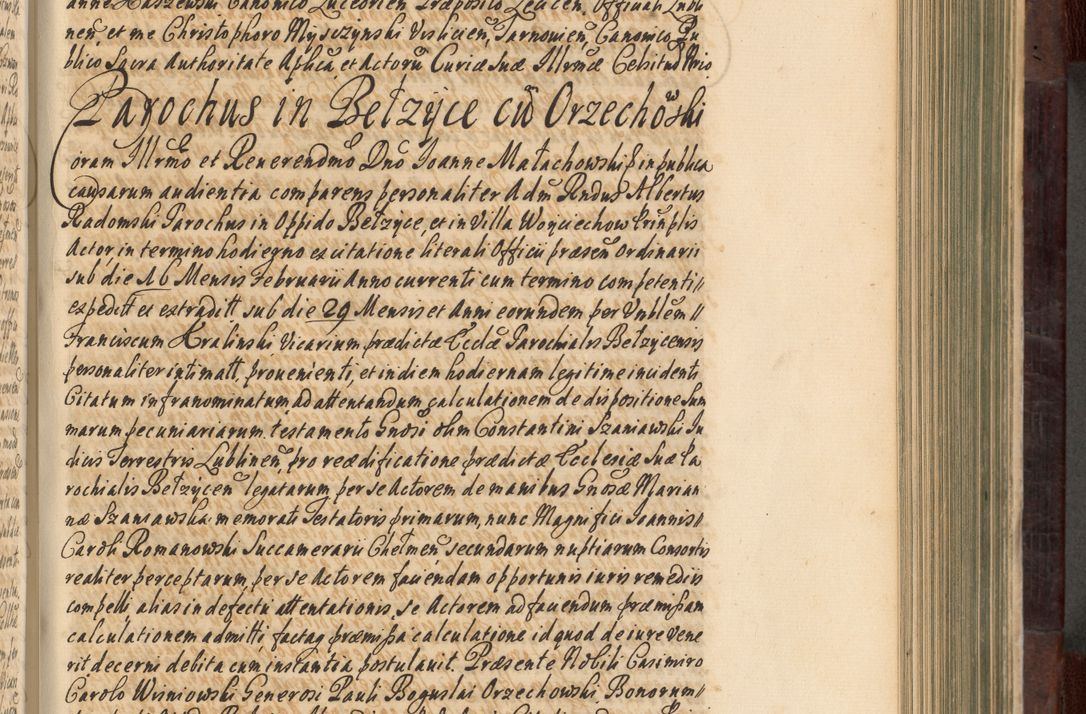 anne Raszewski Canonico Luceorien Præposito Leucen. Officiali Lubli
neñ, et me Christophoro Mysczynski Visliciен, Tarnovieñ, Canonico Pu
blico Sacra Authoritate Aplicã, et Actorũ Curiæ Suæ Illrmæ Celsitud Nrio
Parochus in Bełzyce cũ Orzechowski
Coram Illrmo et Reuerendmo Dno Ioanne Małachowski in publica
causarum audientia comparens personaliter Adm Rndus Albertus
Radomski Parochus in Oppido Bełzyce, et in Villa Woyciechow
Actor, in termino hodierno ex citatione literali Officii præseñ Ordinarii
sub die 16 Mensis Februarii Anno currenti cum termino competenti //
expeditt et extraditt sub die 29 Mensis et Anni eorundem per Vnblem //
Franciscum Kralinski Vicarium prædictæ Ecclæ Parochialis Bełzycensis
personaliter intimatt, prouenienti, et in diem hodiernam legitime incidenti
Citatum infranominatum ad attentandum calculationem de dispositione Sum
marum pecuniariarum testamento Gnosi olim Constantini Szaniawski Iu
dicis Terrestris Lublineñ, pro reædificatione prædictæ Ecclesiæ Suæ Pa
rochialis Bełzyceñ legatarum, per se Actorem de manibus Gnosæ Marian
næ Szaniawska memorati Testatoris primarum, nunc Magnifici Ioannis //
Caroli Romanowski Succamerarii Chelmeñ secundarum nuptiarum Consortis
realiter perceptarum, per se Actorem faciendam opportunis iuris remediis
compelli, alias in defectu attentationis, se Actorem ad faciendum præmissam
calculationem admitti, factaq præmissa calculatione id quod de iure vene
rit decerni debita cum instantia postulauit. Præsente Nobili Casimiro
Carolo Wisniowski Generosi Pauli Boguslai Orzechowski Bonorum //